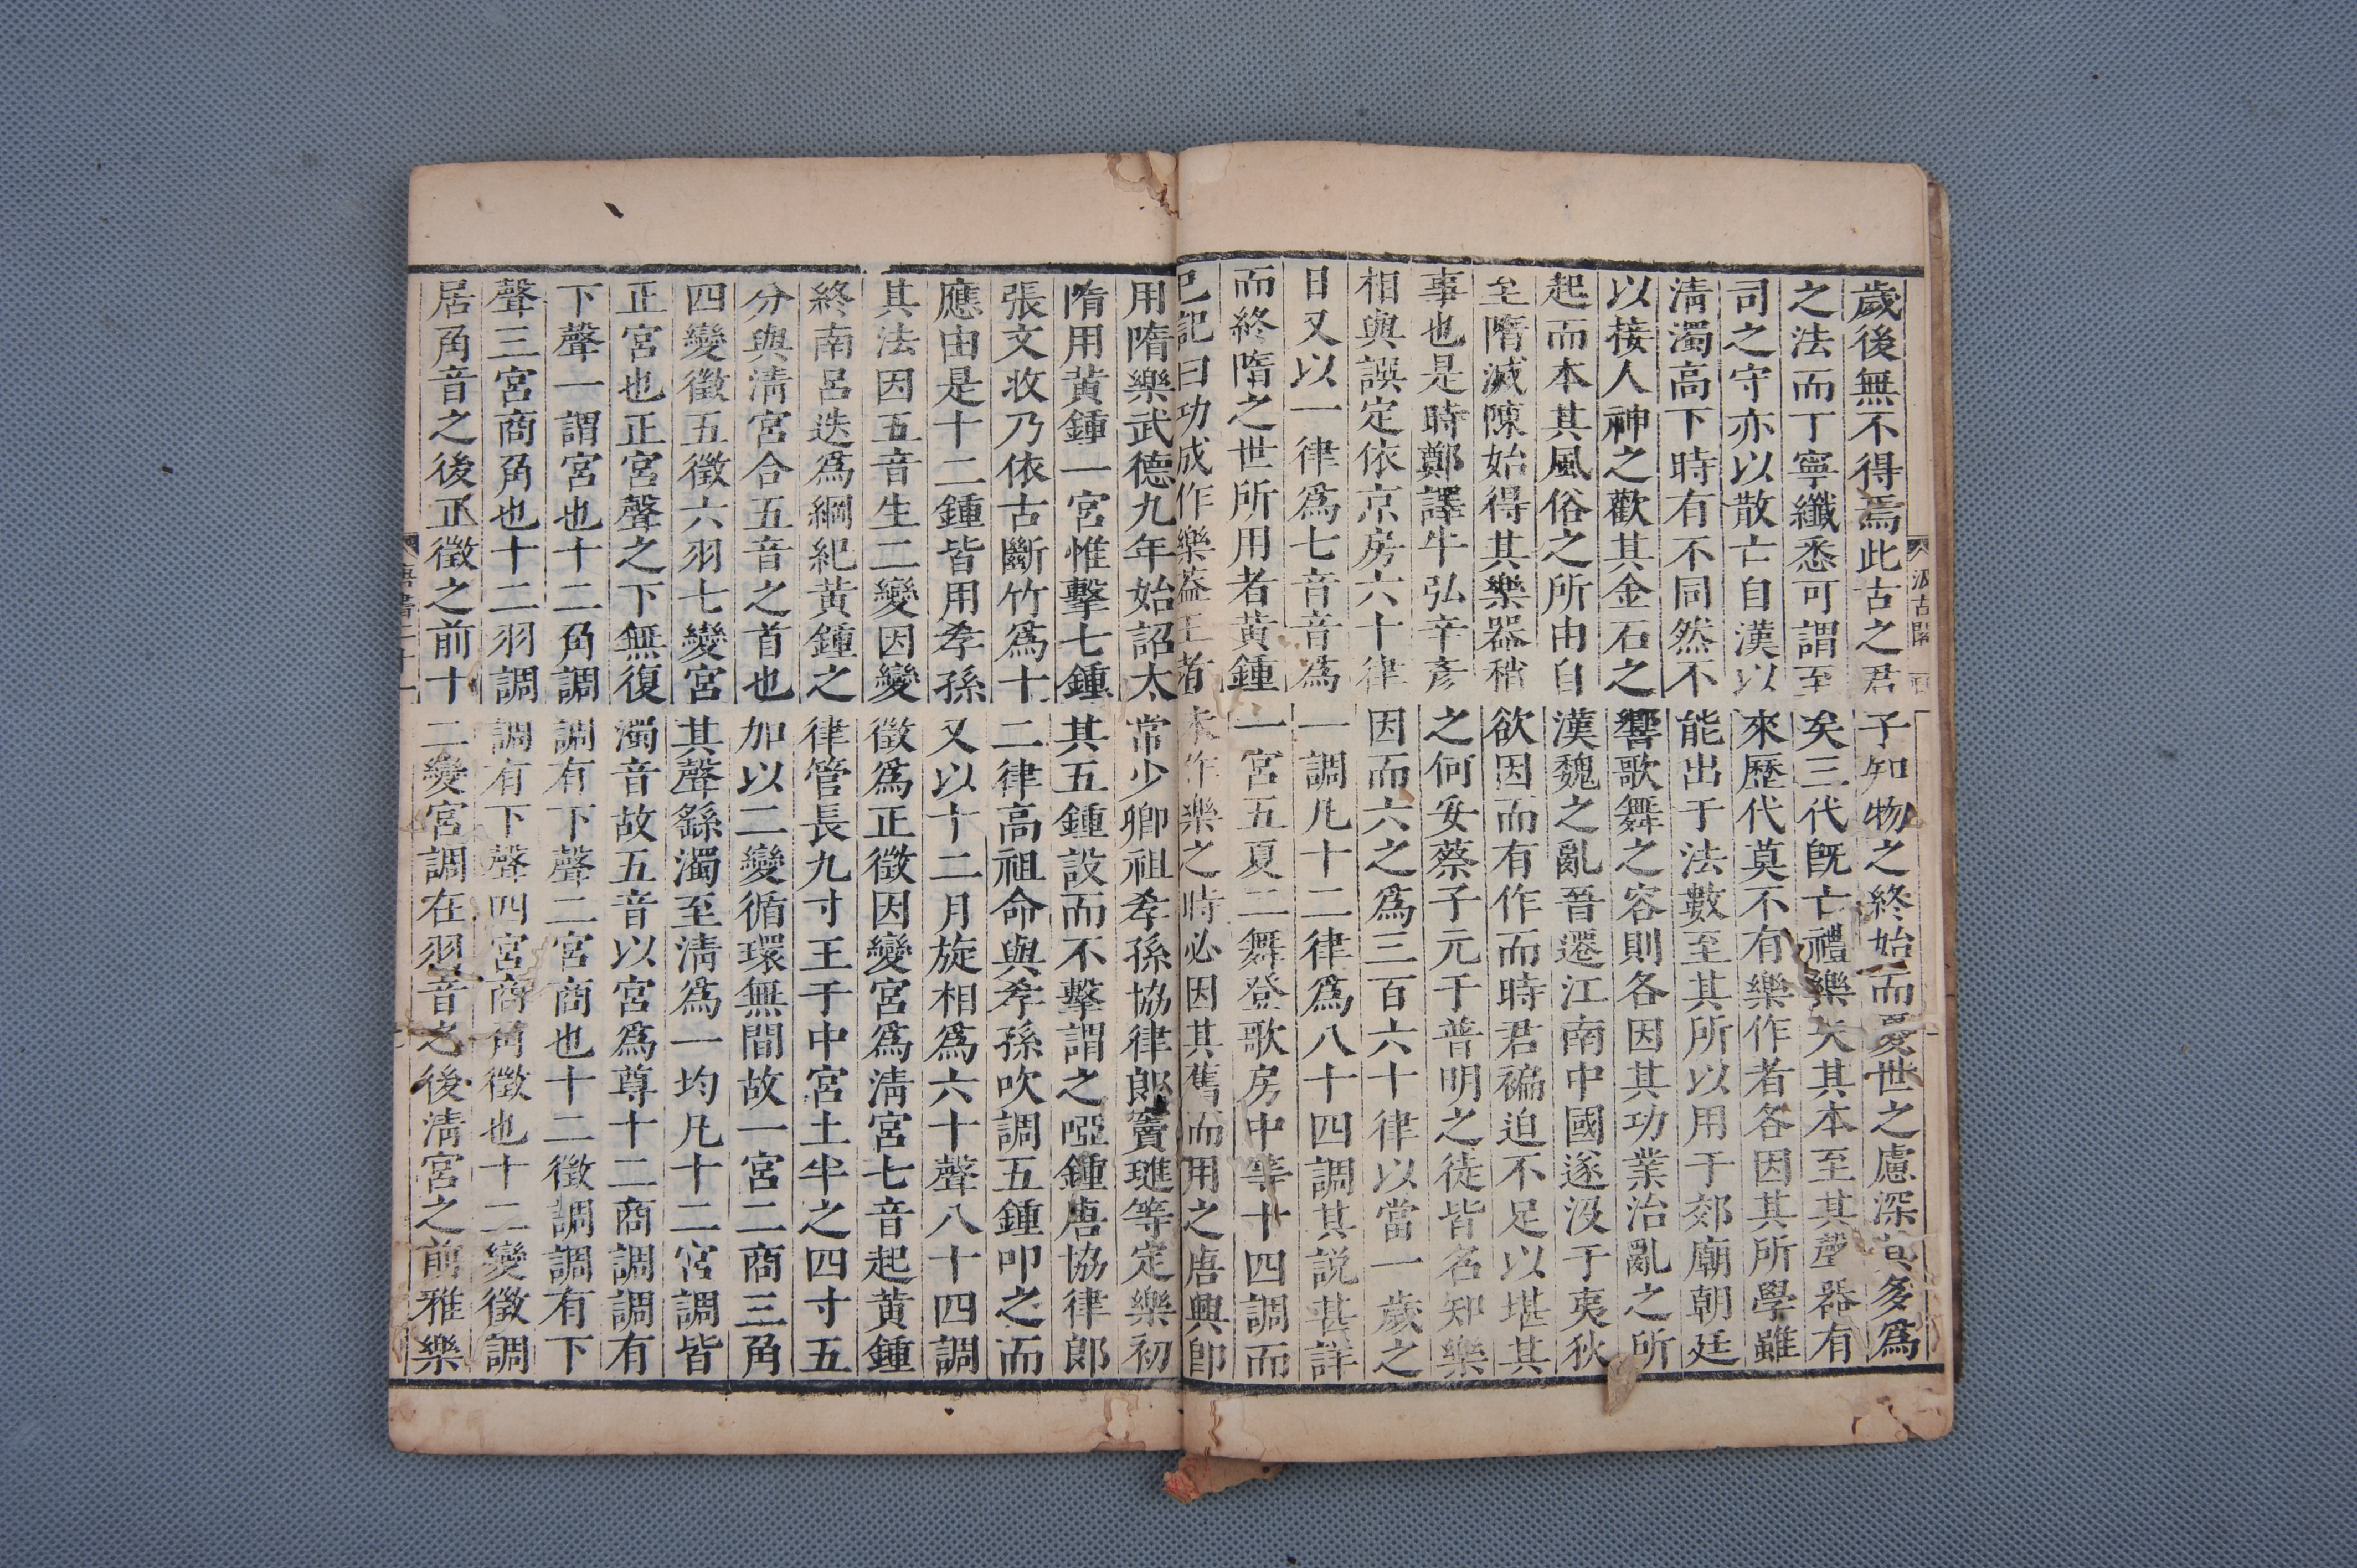 汲古閣
歲後無不得焉此古之君子知物之終始而憂世之慮深其多爲
之法而丁寧纖悉可謂至矣三代旣亡禮樂失其本至其聲器有
司之守亦以散亡自漢以來歷代莫不有樂作者各因其所學雖
清濁高下時有不同然不能出于法數至其所以用于郊廟朝廷
以接人神之歡其金石之響歌舞之容則各因其功業治亂之所
起而本其風俗之所由自漢魏之亂晉遷江南中國遂沒于夷狄
至隋滅陳始得其樂器稍欲因而有作而時君褊迫不足以堪其
事也是時鄭譯牛弘辛彥之何妥蔡子元于普明之徒皆名知樂
相與譔定依京房六十律因而六之爲三百六十律以當一歲之
日又以一律爲七音音爲一調凡十二律爲八十四調其說甚詳
而終隋之世所用者黃鍾一宮五夏二舞登歌房中等十四調而
已記曰功成作樂蓋王者未作樂之時必因其舊而用之唐興卽
用隋樂武德九年始詔太常少卿祖孝孫協律郎竇璡等定樂初
隋用黃鍾一宮惟擊七鍾其五鍾設而不擊謂之啞鍾唐協律郎
張文收乃依古斷竹爲十二律高祖命與孝孫吹調五鍾叩之而
應由是十二鍾皆用孝孫又以十二月旋相爲六十聲八十四調
其法因五音生二變因變徵爲正徵因變宮爲清宮七音起黃鍾
終南呂迭爲綱紀黃鍾之律管長九寸王于中宮土半之四寸五
分與清宮合五音之首也加以二變循環無間故一宮二商三角
四變徵五徵六羽七變宮其聲繇濁至清爲一均凡十二宮調皆
正宮也正宮聲之下無復濁音故五音以宮爲尊十二商調調有
下聲一謂宮也十二角調調有下聲二宮商也十二徵調調有下
聲三宮商角也十二羽調調有下聲四宮商角徵也十二變徵調
居角音之後正徵之前十二變宮調在羽音之後清宮之前雅樂
唐書二十一